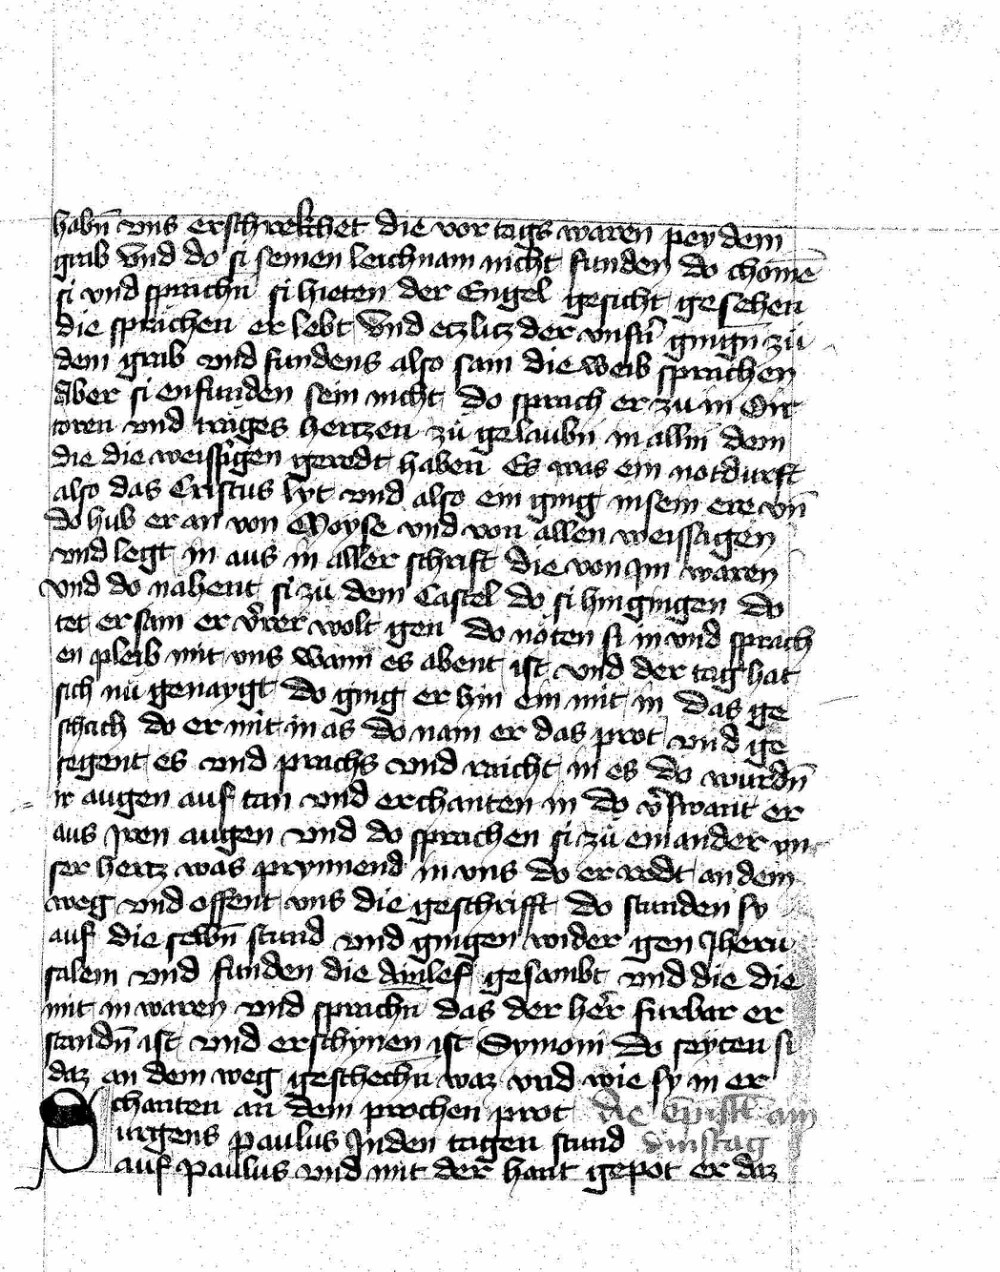 habn̄ vns erschrekchet die vor tags waren pey dem
grab vnd do si seinen leichnam nicht funden do chomē
si vnd sprachn̄ si hieten der Engel gesicht gesehen
die sprachen er lebt vnd etzlitz der vnsn̄ gingn̄ zů
dem grab vnd fundens also sam die weib sprachen
Aber si enfunden sein nicht do sprach er zu in O ir
toren vnd trages hertzen zů gelaubn̄ in alln̄ dem
die die weissagen geredt haben Es was ein notdurft
also das Cristus lyt vnd also ein ging in sein ere vn̄
do hub er an von Moyse vnd von allen weissagen
vnd legt in aus in aller schrift die von Im waren
vnd do nahent si zů dem Castel do si hin gingen do
tet er sam er v̄rer wolt gen do nöten si in vnd sprach
en pleib mit vns wann es abent ist vnd der tag hat
sich nů genaygt do ging er hin ein mit in das ge
schach do er mit in as do nam er das prot vnd ge
segent es vnd prachs vnd raicht in es do wurdn̄
ir augen auf tan vnd erchanten in do v̄swant er
aus Iren augen vnd do sprachen si zů einander vn
ser hertz was prynnend in vns do er redt an dem
weg vnd offent vns die geschrifft do stunden sy
auf die selbn̄ stund vnd gingen wider gen Iheru
salem vnd funden die Ainlef gesambt vnd die die
mit in waren vnd sprachn̄ das der her furbar er
standn̄ ist vnd erschynen ist Symoni do seyten si
daz an dem weg geschechn̄ waz vnd wie sy in er
chanten an dem prochen prot die epistl am
urgens paulus In den tagen stund dinstag
auf Paulus vnd mit der hant gepot er daz